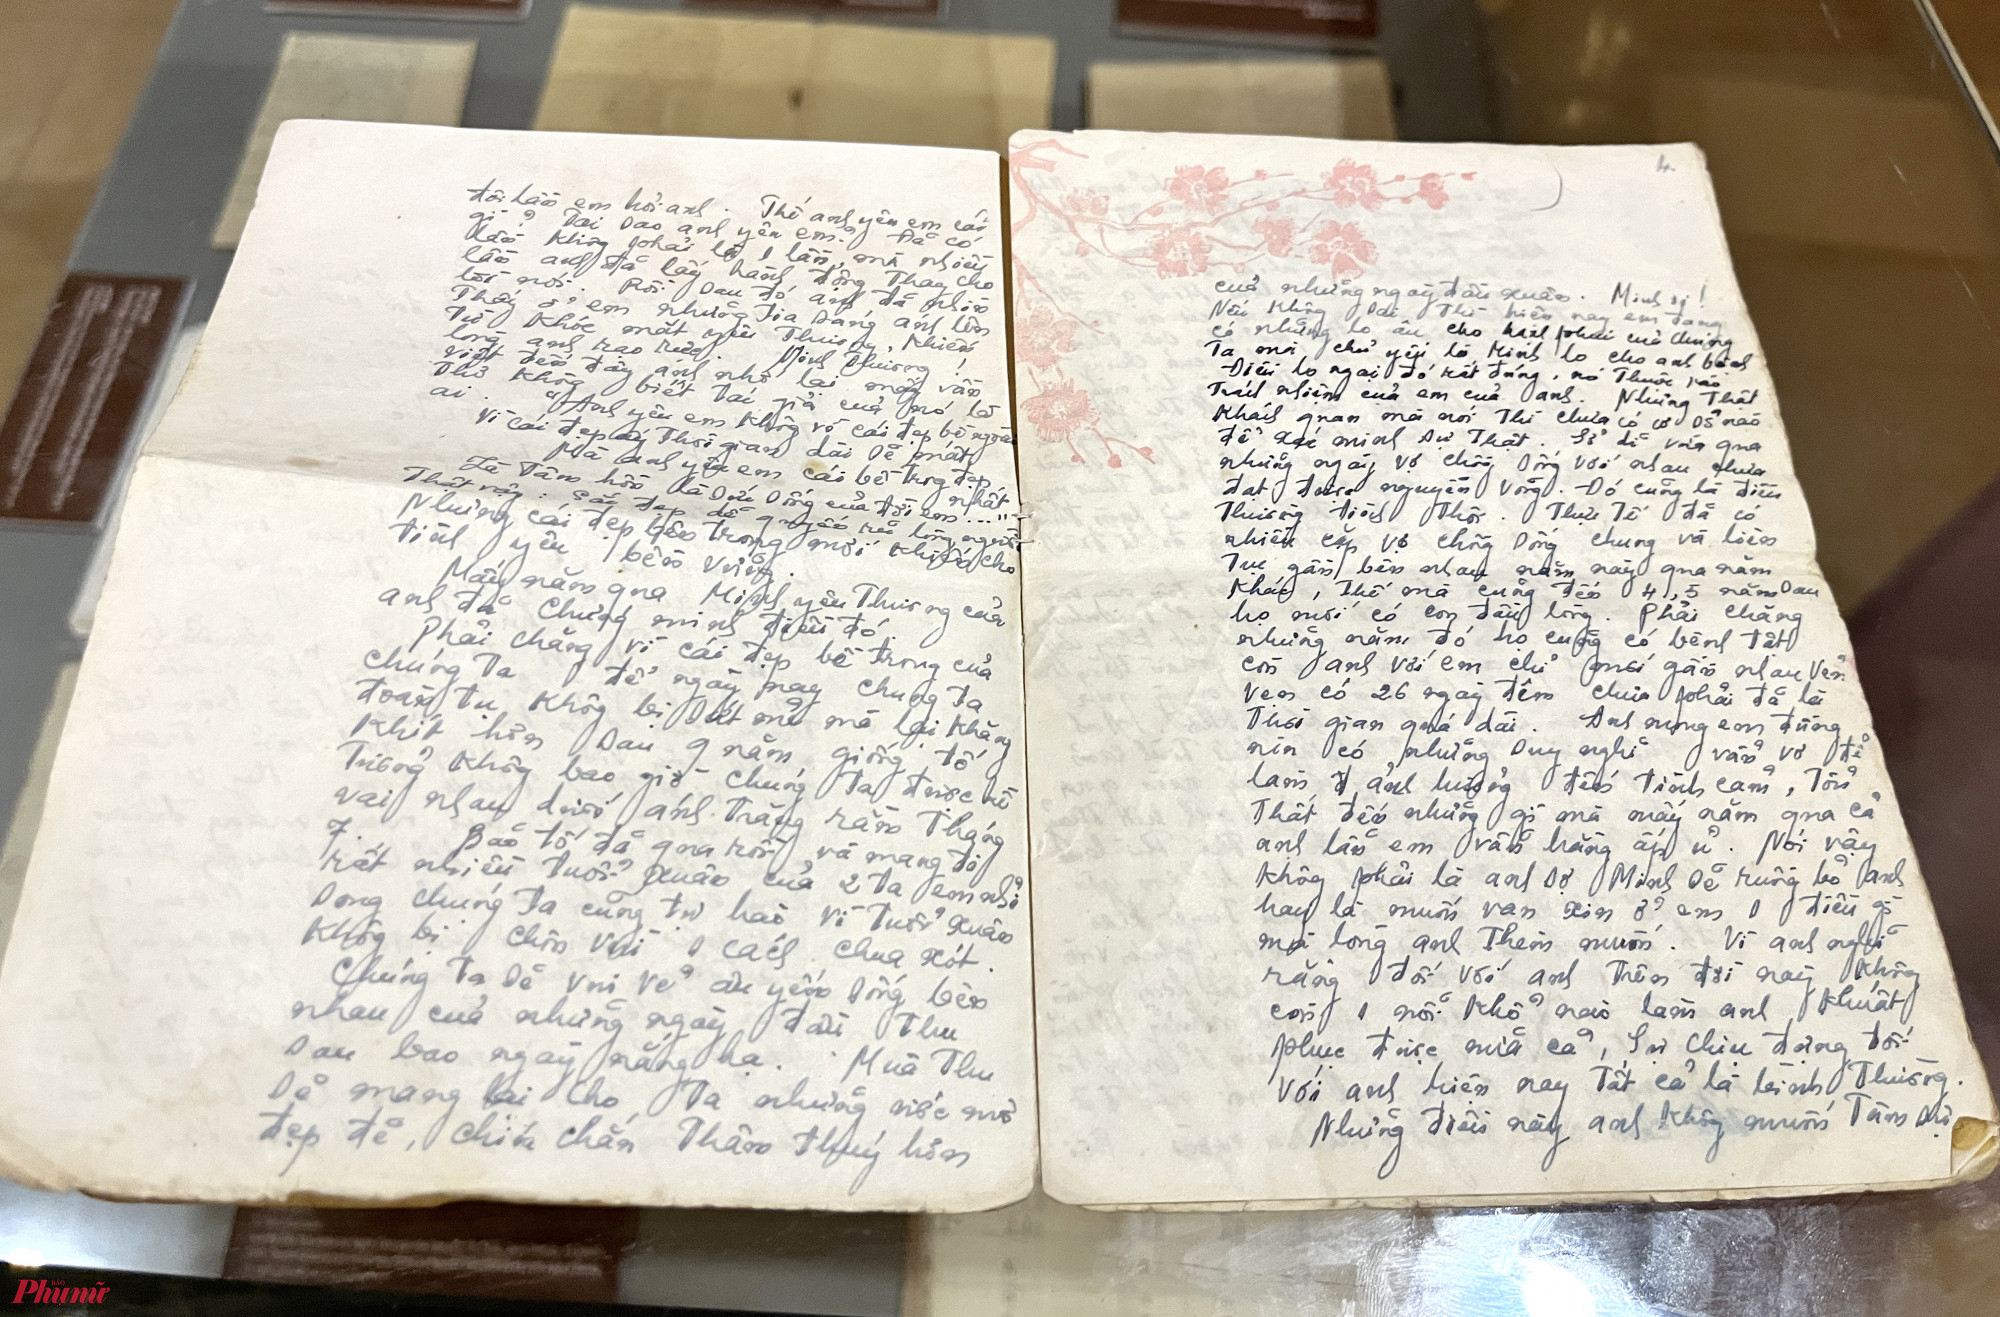 đôi lần em hỏi anh. Thế anh yêu em cái
gì? Tại sao anh yêu em? Đã có
lần không phải là 1 lần, mà nhiều
lần anh đã lấy hành động thay cho
lời nói. Rồi sau đó anh đã nhìn
thấy ở em những
từ khóe mắt yêu thương, khiến
lòng anh rạo rực. Minh thương!
viết đến đây anh nhớ lại mấy vần
thơ không biết tác giả của nó là
ai. "Anh yêu em không vì cái đẹp bề ngoài
Vì cái đẹp ấy thời gian dài dễ mất
Mà anh yêu em cái bề trong đẹp nhất
Là tâm hồn là sức sống của đời em...."
Thật vậy: Sắc đẹp dễ quyến rũ lòng người
Nhưng cái đẹp bên trong mới khiến cho
tình yêu bền vững.
Mấy năm qua Minh yêu thương của
anh đã chứng minh điều đó.
Phải chăng vì cái đẹp bề trong của
chúng ta để ngày nay chúng ta
đoàn tụ không bị sứt mẻ mà lại khăng
khít hơn sau 9 năm giông tố
Tưởng không bao giờ chúng ta được kề
vai nhau dưới ánh trăng rằm tháng
7. Bão tố đã qua rồi, và mang đi
rất nhiều tuổi xuân của 2 ta em nhỉ
Song chúng ta cũng tự hào vì tuổi xuân
không bị chôn vùi 1 cách chua xót.
Chúng ta sẽ vui vẻ âu yếm sống bên
nhau của những ngày đầu thu
sau bao ngày nắng hạ. Mùa thu
sẽ mang lại cho ta những ước mơ
đẹp đẽ, chín chắn thâm thúy hơn
4.
của những ngày đầu xuân. Minh ơi!
Nếu không sai thì hiện nay em đang
có những lo âu cho hạnh phúc của chúng
ta mà chủ yếu là Minh lo cho anh bệnh
Điều lo ngại đó rất đúng, nó thuộc vào
trách nhiệm của em của anh. Nhưng thật
khách quan mà nói thì chưa có cơ sở nào
để xác minh sự thật. Sở dĩ vừa qua
những ngày vợ chồng sống với nhau chưa
đạt được nguyện vọng. Đó cũng là điều
thường tình thôi. Thực tế đã có
nhiều cặp vợ chồng sống chung và liên
tục gần bên nhau năm này qua năm
khác, thế mà cũng đến 4, 5 năm sau
họ mới có con đầu lòng. Phải chăng
những năm đó họ cũng có bệnh tật
còn anh với em chỉ mới gần nhau vẻn
vẹn có 26 ngày đêm chưa phải đã là
thời gian quá dài. Anh mong em đừng
nên có những suy nghĩ vẩn vơ để
làm ảnh hưởng đến tình cảm, tổn
thất đến những gì mà mấy năm qua cả
anh lẫn em vẫn hằng ấp ủ. Nói vậy
không phải là anh sợ Minh sẽ ruồng bỏ anh
hay là muốn van xin ở em 1 điều gì
mà lòng anh thèm muốn. Vì anh nghĩ
rằng đối với anh trên đời này không
còn 1 nỗi khổ nào làm anh khuất
phục được nữa cả, sự chịu đựng đối
với anh hiện nay tất cả là bình thường.
Những điều này anh không muốn tâm sự
BÁO
Phụ nữ